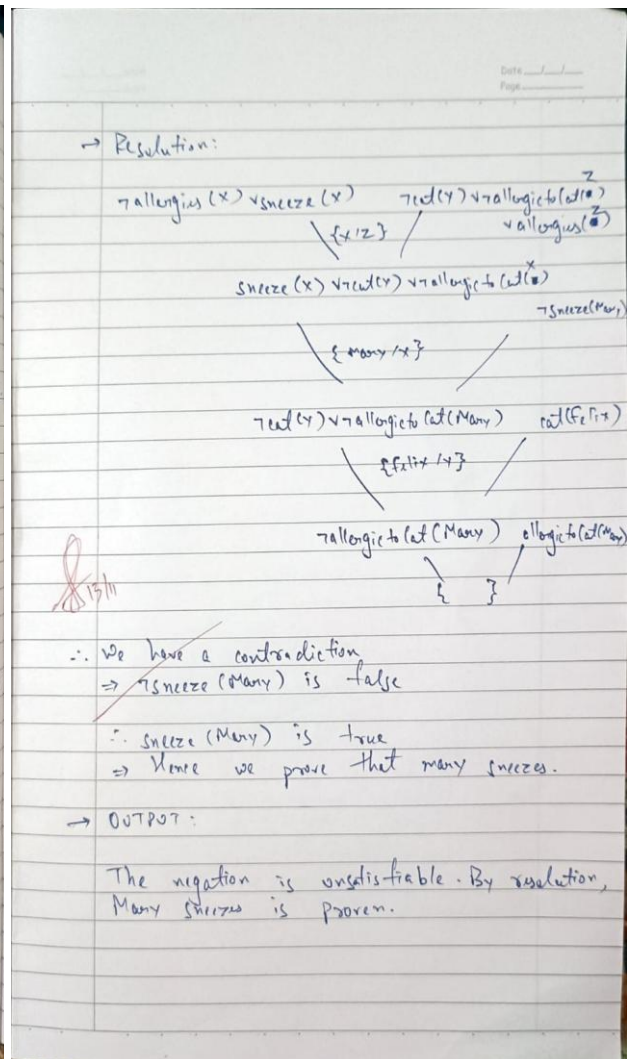 Date __/__/__
Page
→ Resolution:
¬allergies (x) v sneeze (x) ¬cat(y) v ¬allergictoCat(z)
v allergies(z)
{x/z}
sneeze (x) v ¬cat(y) v ¬allergicto Cat(x)
¬sneeze(Mary)
{Mary/x}
¬cat(y) v ¬allergicto Cat(Mary) cat(Felix)
{felix/y}
¬allergic to Cat (Mary) allergic to Cat(Mary)
{ }
13/11
∴ We have a contradiction
⇒ ¬sneeze (Mary) is false
∴ sneeze (Mary) is true
⇒ Hence we prove that many sneezes.
→ OUTPUT:
The negation is unsatisfiable. By resolution,
Mary sneezes is proven.